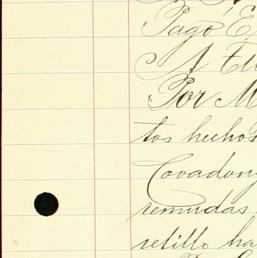 Pago E
A Ed
Por M
tos hechos
Covadon
remudas
retillo ha